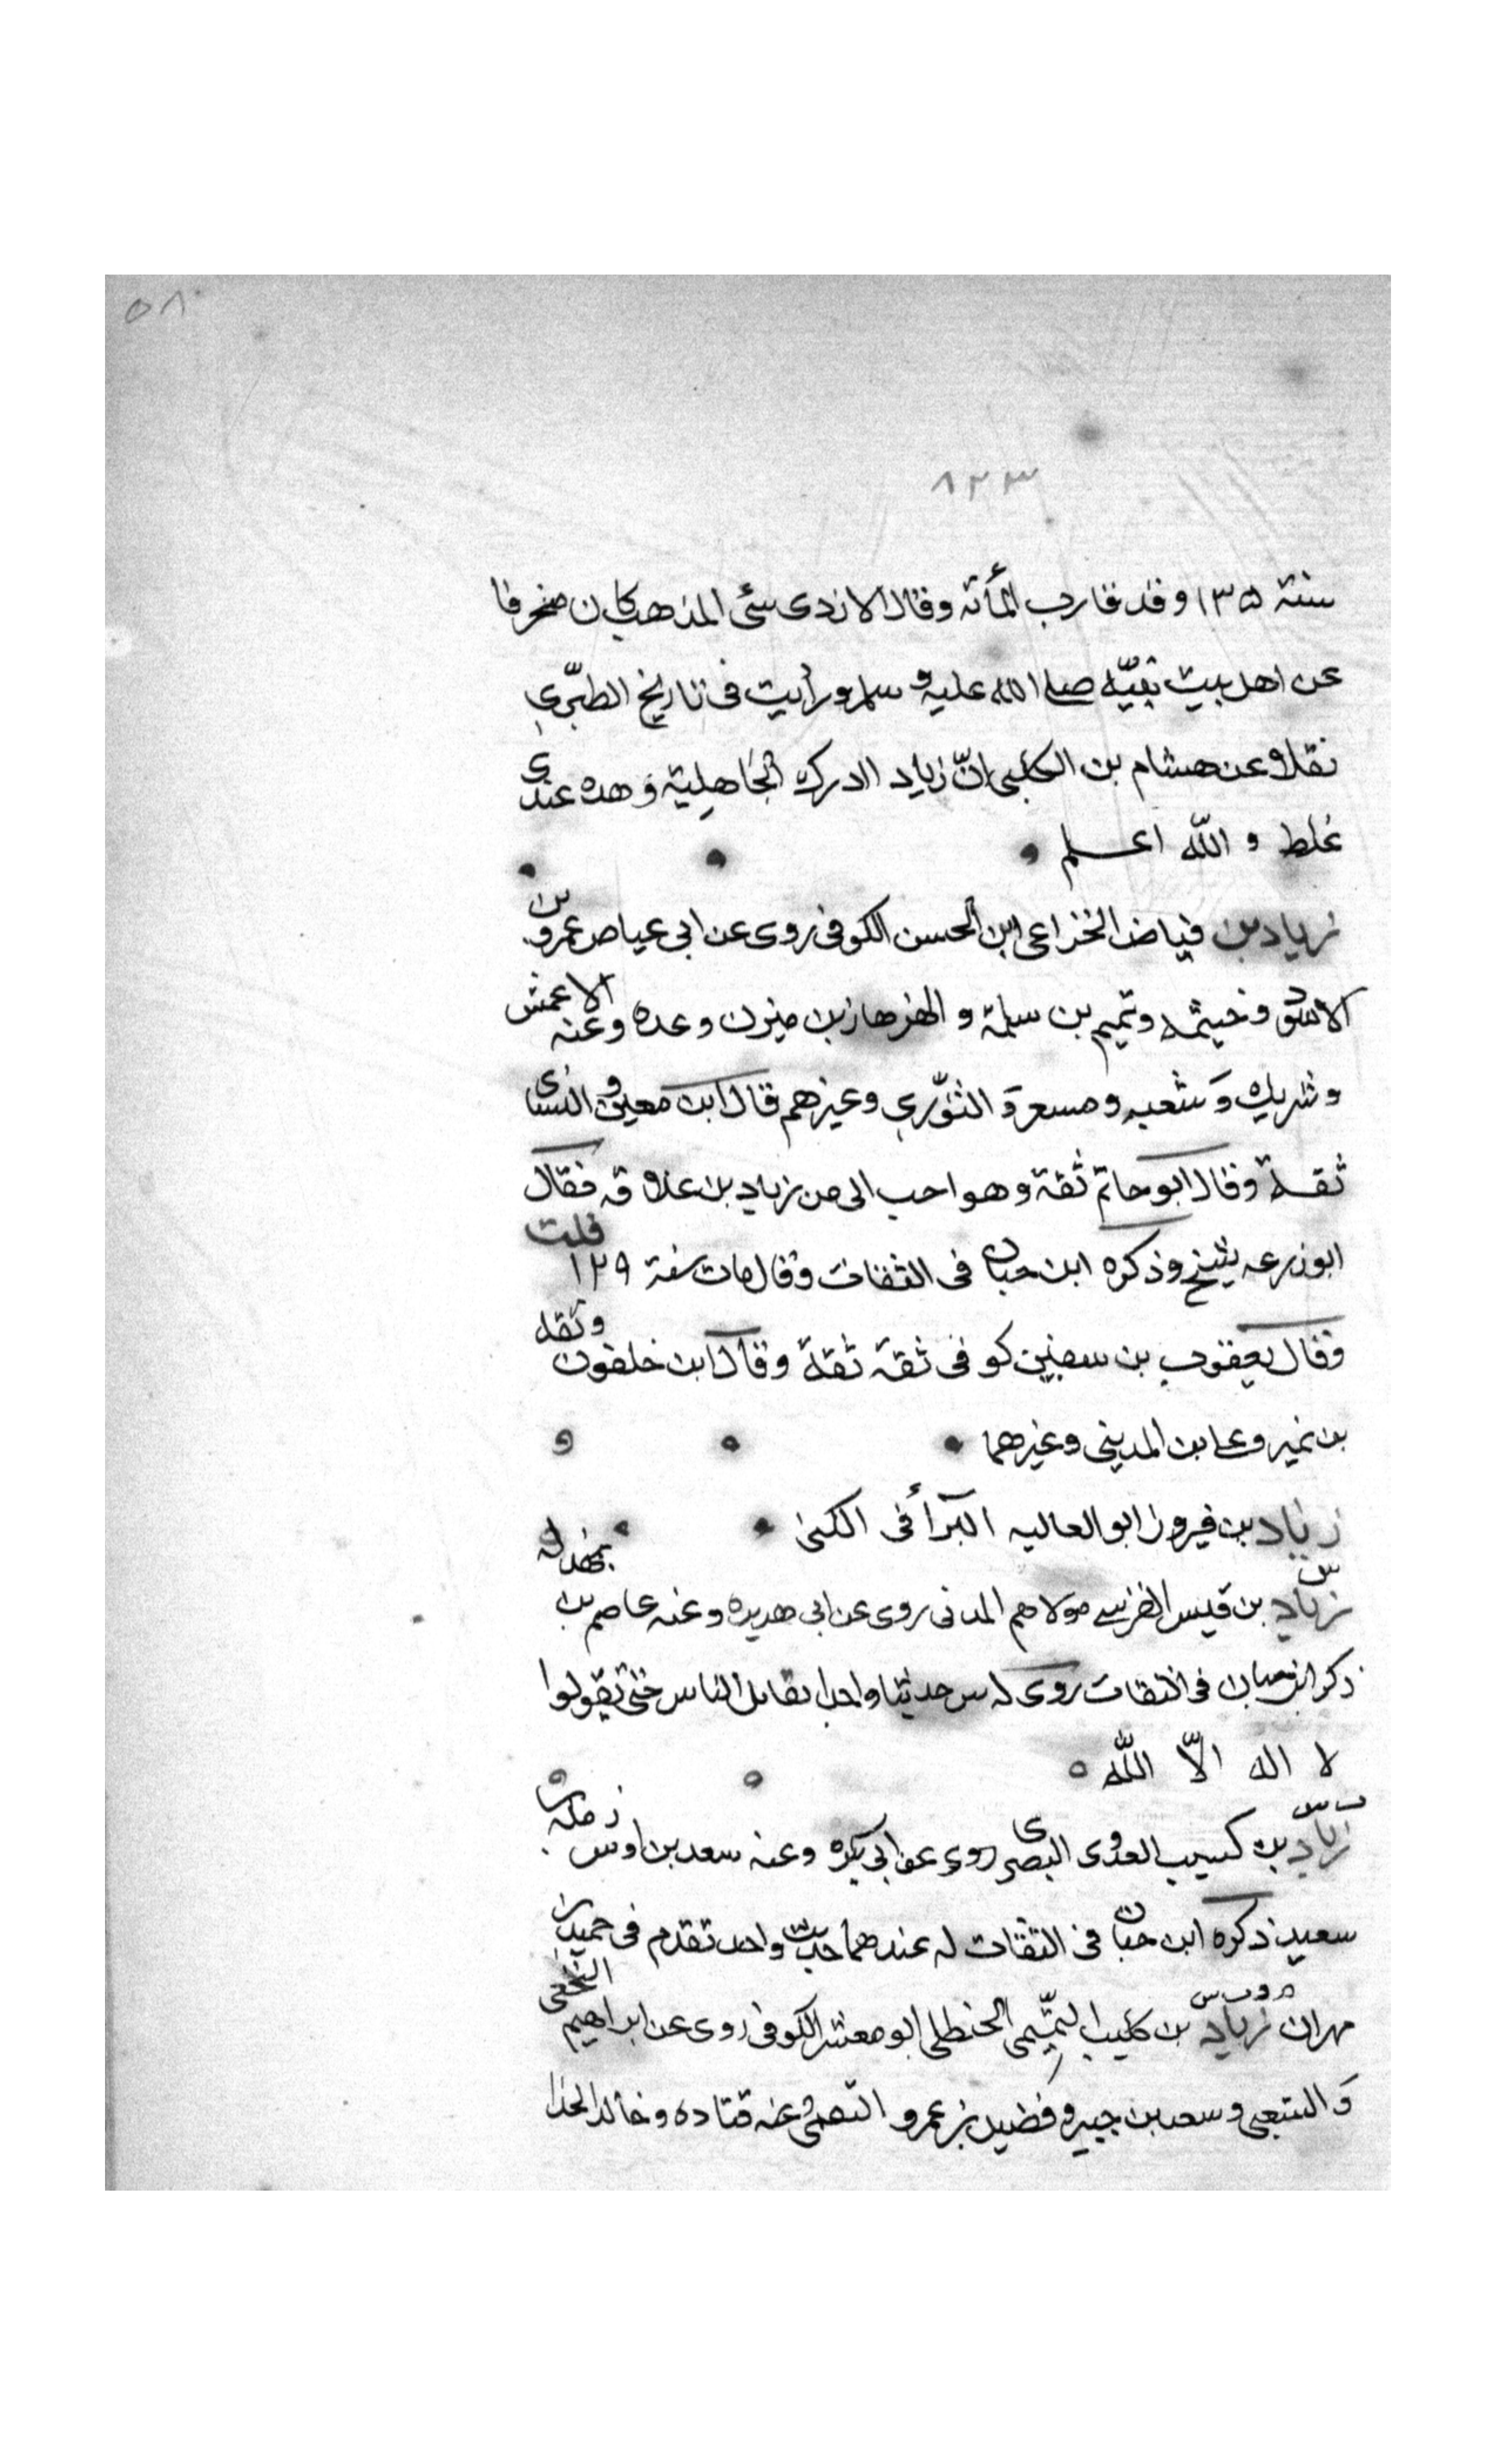 ٥٨
٨٢٣
سنة ١٣٥ وقد قارب المأته وقال الازدى سئى المذهب كان منحرفا
عن اهل بيت نبيّه صلى الله عليه و سلم ورأيت فى تاريخ الطبّرى
نقلا عن هشام بن الكلبى انّ زياد ادرك الجاهلية وهده عندى
غلط و اللّه اعلم
زياد بن فياض الخزاعى ابن الحسن الكوفى روى عن ابى عياص عمرو بن
الاسود وخيثمه وتميم بن سلمة و الهزهاز بن ميزن وعده وعنه الاعمش
وشريك وَشعبه ومسعر وَ الثوّرى وغيرهم قال ابن معين و النساى
ثقة وقال ابو حاتم ثقة وهو احب الى من زياد بن علاقه فقال
ابوزرعه شيخ وذكره ابن حبان فى الثقات وقال مات سنة ١٢٩ قلت
وقال يعقوب بن سفين كوفى ثقة ثقة وقال ابن خلفون وثقه
بن نمير وعلى بن المدينى وغيرهما
زياد بن فيروز ابو العاليه البرّأ فى الكنى
س
زياد بن قيس القرشى مولاهم المدنى روى عن ابى هديره وعنه عاصم بن بهدله
ذكر ابن حبان فى الثقات روى له س حديثا واحدا نقاتل الناس حتى تقولوا
لا اله الاّ اللّه
ت س
زياد بن كسيب العدوى البصرى روى عن ابى بكره وعنه سعد بن اوس
سعيد ذكره ابن حبان فى الثقات له عندهما حديث واحد تقدم فى حميد بن
م د ت س
مهران زياد بن كليب التميّمى الحنظلى ابو معشر الكوفى روى عن ابراهيم النخعى
وَ الشعبى وسعد بن جبير و فضيل بن عمرو عنه قتاده وخالد الحذا